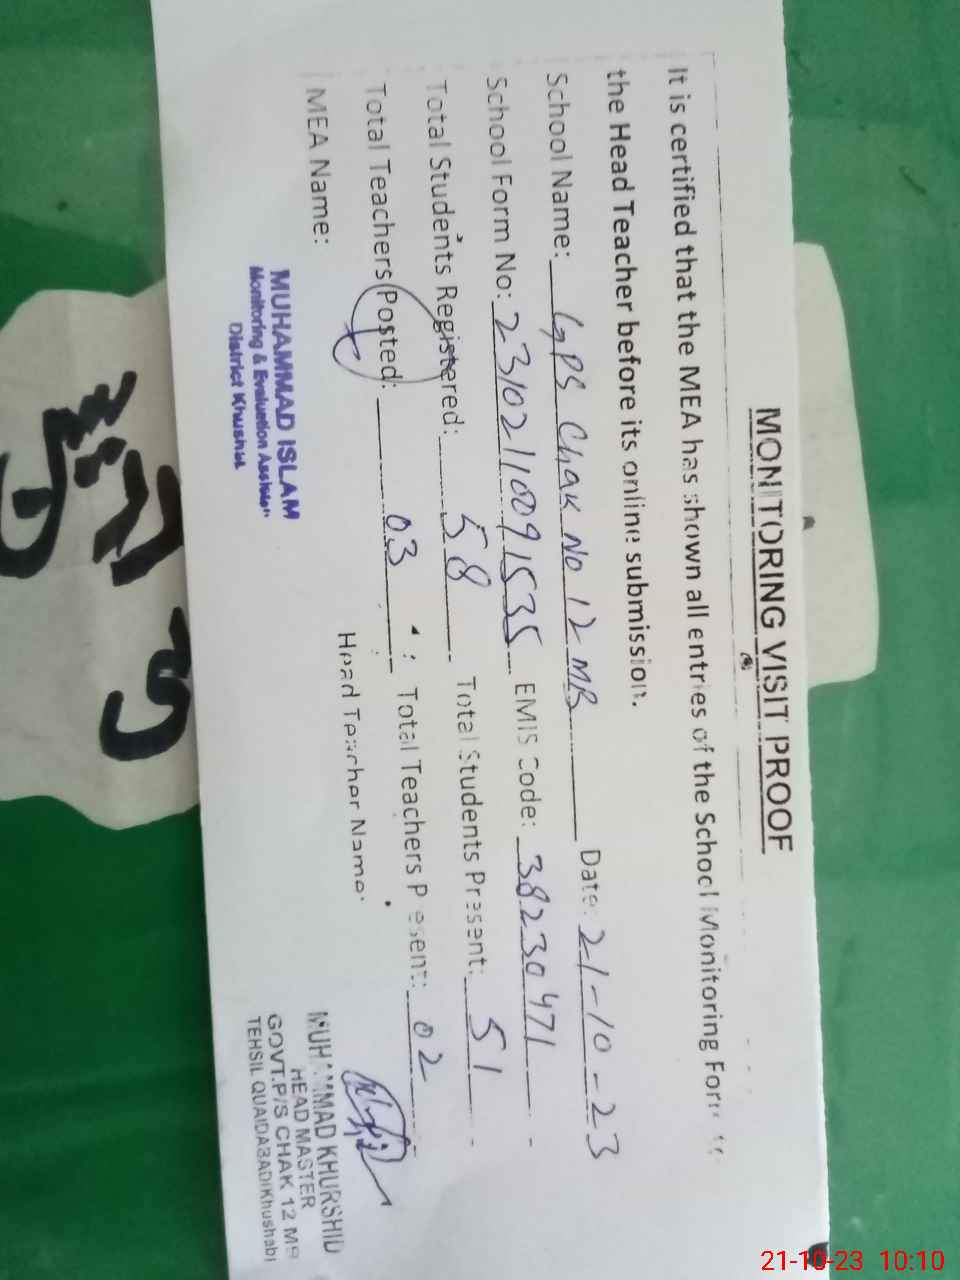 MONITORING VISIT PROOF
It is certified that the MEA has shown all entries of the School Monitoring Form to
the Head Teacher before its online submission.
School Name: GPS Chak No 12 MB Date: 21-10-23
School Form No: 23102110091535 EMIS Code: 38230471
Total Students Registered: 58 Total Students Present: 51
Total Teachers Posted: 03 Total Teachers Present: 02
MEA Name: Head Teacher Name:
MUHAMMAD ISLAM
Monitoring & Evaluation Assistant
District Khushab
MUHAMMAD KHURSHID
HEAD MASTER
GOVT.P/S CHAK 12 MB
TEHSIL QUAIDABAD(Khushab)
21-10-23 10:10